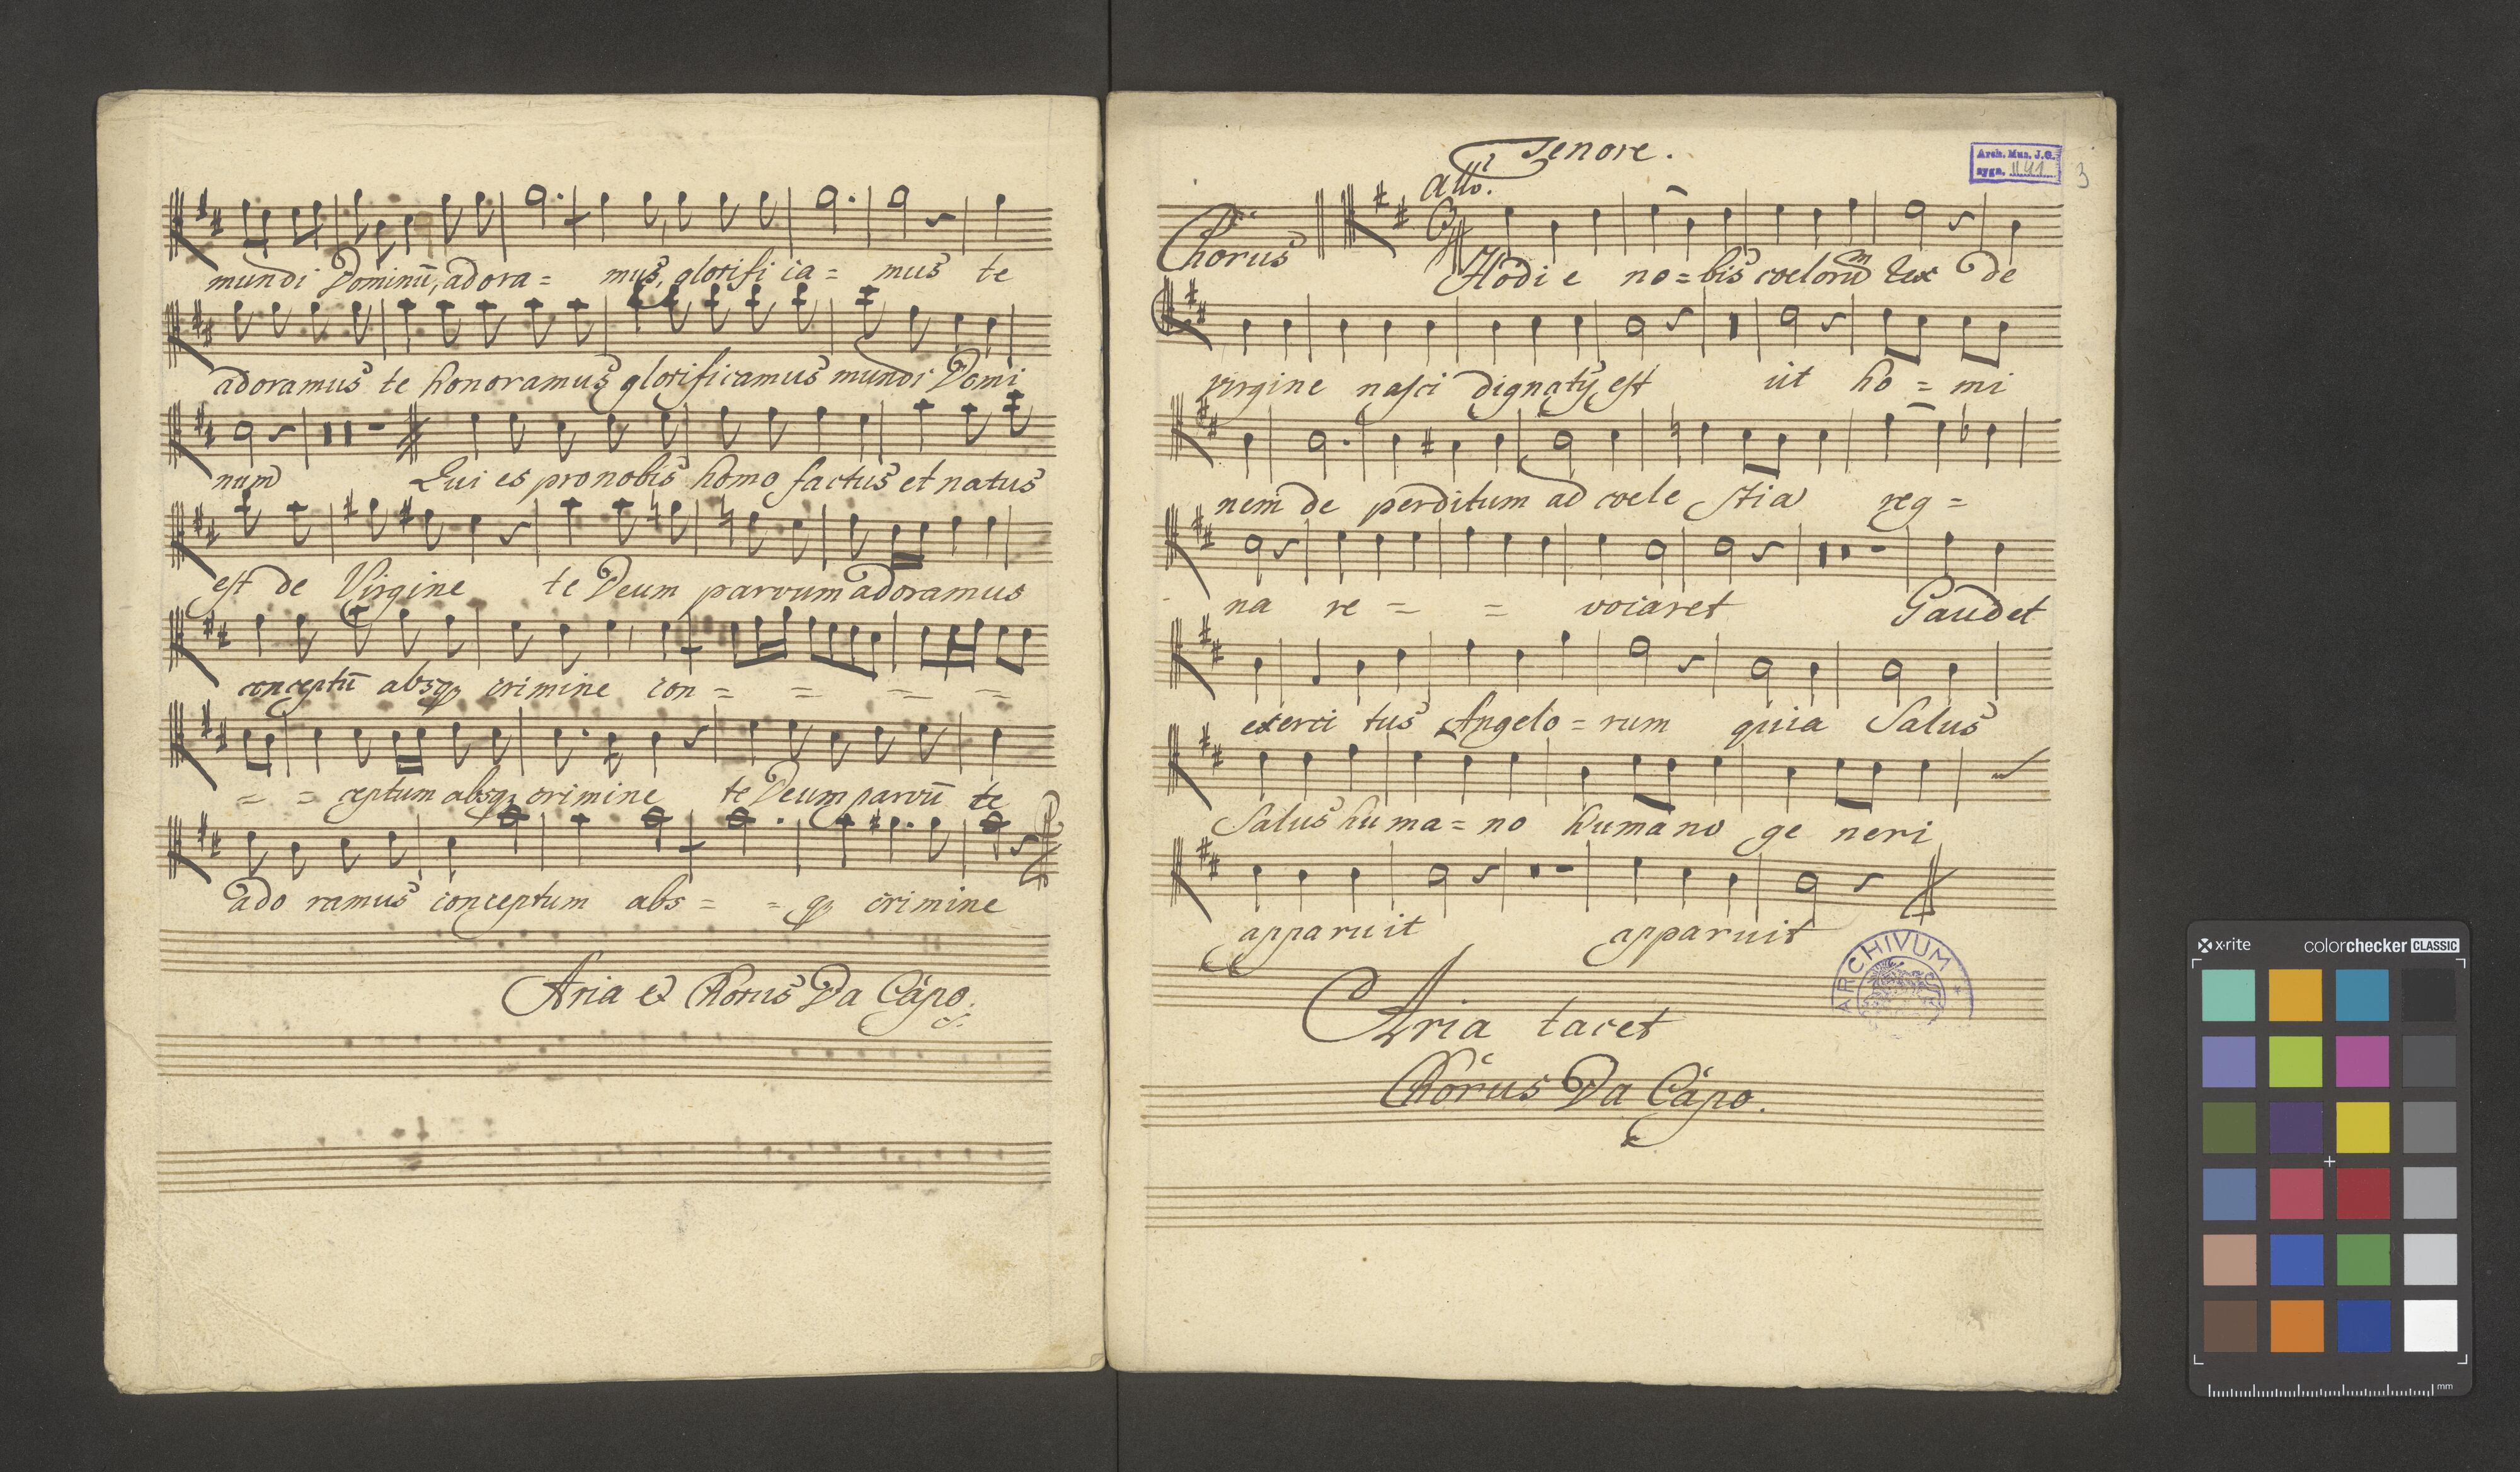 mundi Dominū, adora = mus, glorifi ca = mus te
adoramus te honoramus glorificamus mundi Domi
num Qui es pro nobis homo factus et natus
est de Virgine te Deum parvum adoramus
conceptū absqȝ crimine con = = = =
= = ceptum absqȝ crimine te Deum parvū te
ado ramus conceptum abs = = qȝ crimine
Aria et Chorus Da Capo.
Tenore.
Arch. Mus. J.G.
sygn. II 41
3
Allo.
Chorus
Hodi e no = bis coelorum Rex de
virgine nasci dignatus est ut ho = mi
nem de perditum ad coele stia reg =
na re = = vocaret Gaudet
exerci tus Angelo = rum quia Salus
Salus hu ma = no humano ge neri
apparuit apparuit
ARCHIVUM
Aria tacet
Chorus Da Capo.
x-rite colorchecker CLASSIC
mm